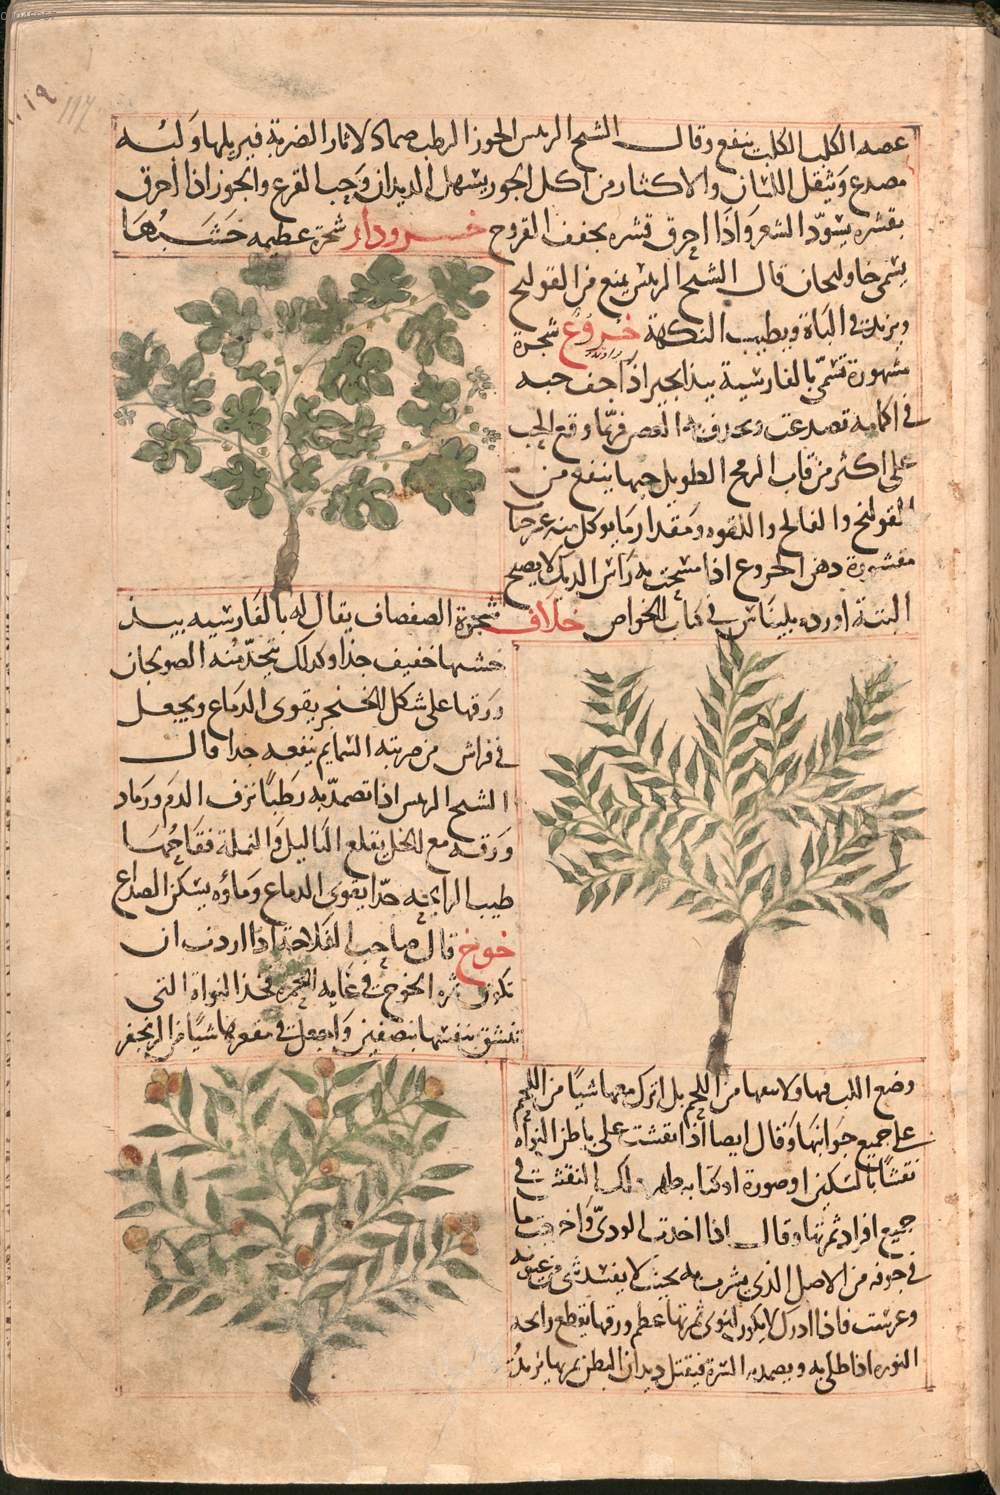 ١١٩ 117
عضه الكلب الكلب ينفع وقال الشيخ الرئيس الجوز الرطب ضماد لاثار الضربة فيزيلها ولبه
مصدع ويثقل اللسان والاكثار من اكل الجوز يسهل الديدان وحب القرع والجوز اذا احرق
بقشره يسود الشعر واذا احرق قشره يجفف القروح خسرودار شجرة عظيمه خشبها
يسمى خاولنجان قال الشيخ الرئيس يمنع من القولنج
ويزيد في الباة ويطيب النكهة خروع شجرة
مشهورة تسمى بالفارسية بيدانجير اذا جف حبه
في اكمامه تصدعت فربما وقع الحب
على اكثر من قاب الرمح الطويل حبها ينفع من
القولنج والفالج واللقوه ومقدار ما يوكل منه عشر حبا
مقشورة دهن الخروع اذا مسحت به راس الديك لا يصيح
البتة اورده بليناس في كتاب الخواص خلاف شجرة الصفصاف يقال له بالفارسيه بيد
خشبها خفيف جدا وكذلك يتخذ منه الصولجان
ورقها على شكل الخنجر يقوى الدماغ ويجعل
في فراش من ضربته السمايم ينفعه جدا قال
الشيخ الرئيس اذا تضمد به رطبا نزف الدم ورماد
ورقه مع الخل يقلع الثاليل والنملة فقاحها
طيب الرايحه جدا يقوى الدماغ وماؤه يسكن الصداع
خوخ قال صاحب الفلاحة اذا اردت ان
تكون ثمرة الخوخ في غاية الحمرة فخذ النواة التى
تنشق بنفسها بنصفين واجعل في مقعرها شيا من الزنجفر
وضع اللب فيها ولا تنقها من اللحم بل اترك معها شيا من اللحم
على جميع جوانبها وقال ايضا اذا نقشت على باطن النواه
نقشا بالسكين او صورة او كتابه ظهر ذلك النقش في
جميع افراد ثمرتها وقال اذا اخذت الودى واخرجت ما
في جوفه من الاصل الذى يشرب به بحيث لا يفسد شى من عيونه
وغرست فاذا ادرك لا يكون لنوى ثمرتها عظم ورقها يقطع رايحه
النوره اذا طلى به ويضمد به السرة فيقتل ديدان البطن ثمرتها يزيد